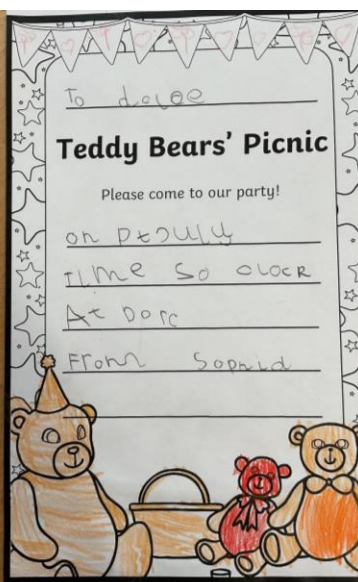 To
Teddy Bears' Picnic
Please come to our party!
on
TIme So clocR
At Darc
From Sophid